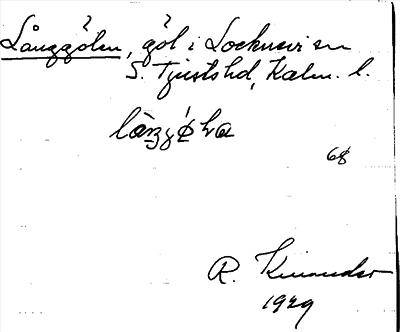 Långgölen, göl i Locknevi sn
S. Tjusts hd, Kalm. l.
68
R. Kinander
1929